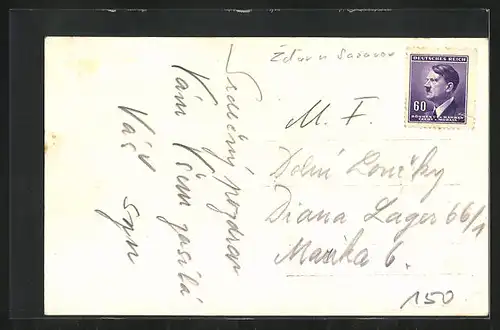 Žďár n Sázavou
DEUTSCHES REICH
60
BÖHMEN U. MÄHREN
ČECHY A MORAVA
Srdečný pozdrav
Vám Všem zasílá
Váš syn
M. F.
Dolní Loučky
Diana Lager 66/1
Marika 6.
150